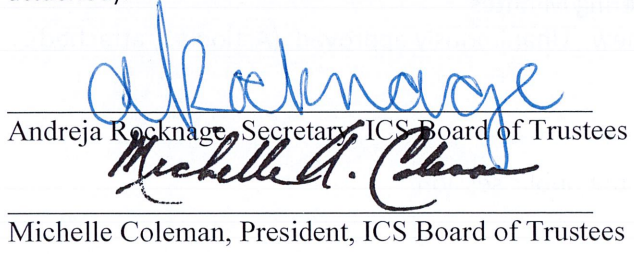 aRocknage
Andreja Rocknage, Secretary, ICS Board of Trustees
Michelle A. Coleman
Michelle Coleman, President, ICS Board of Trustees